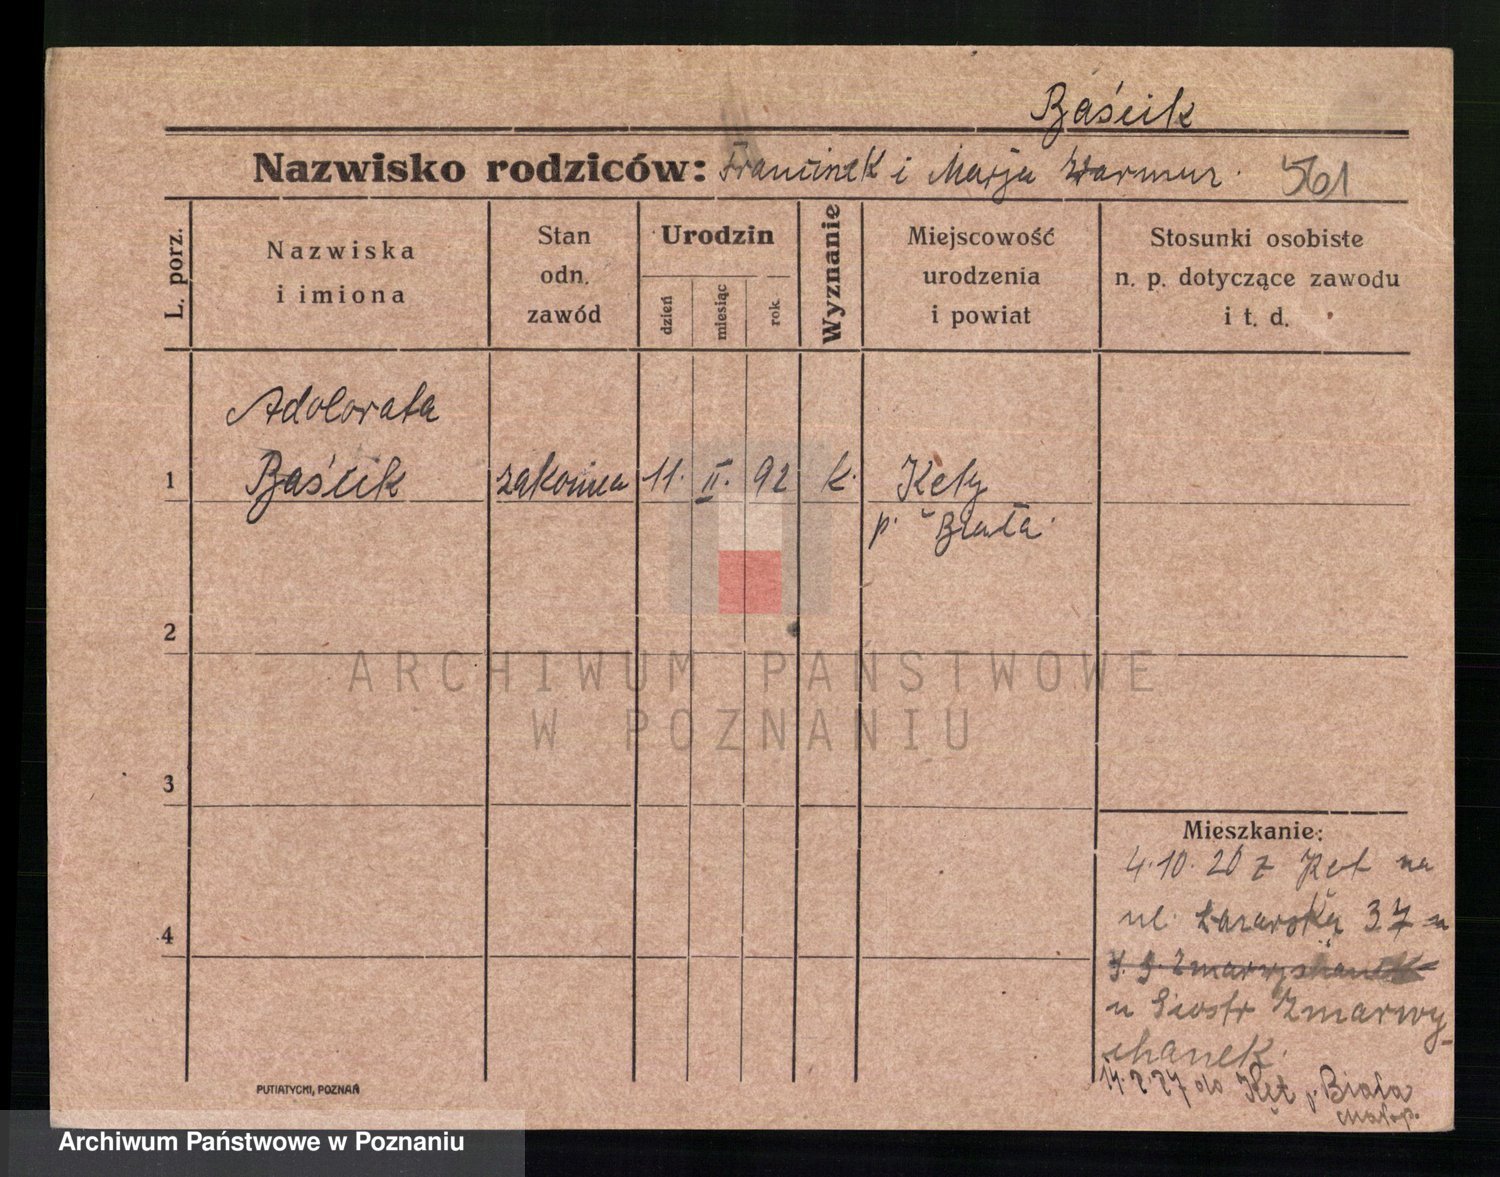 Baścik
Nazwisko rodziców: Franciszek i Marja Warmuz. 561
L. porz.
Nazwiska
i imiona
Stan
odn.
zawód
Urodzin
dzień
miesiąc
rok.
Wyznanie
Miejscowość
urodzenia
i powiat
Stosunki osobiste
n. p. dotyczące zawodu
i t. d.
Adolorata
1 Baścik zakonna 11. II. 92 k. Kęty
p. Biała.
2
3
4
ARCHIWUM PAŃSTWOWE
W POZNANIU
Mieszkanie:
4.10.26 z Kęt na
ul. Łazarską 37 u
u Siostr Zmarwy-
chanek.
14.8.27 do Kęt p. Biała
małop.
PUTIATYCKI, POZNAŃ
Archiwum Państwowe w Poznaniu